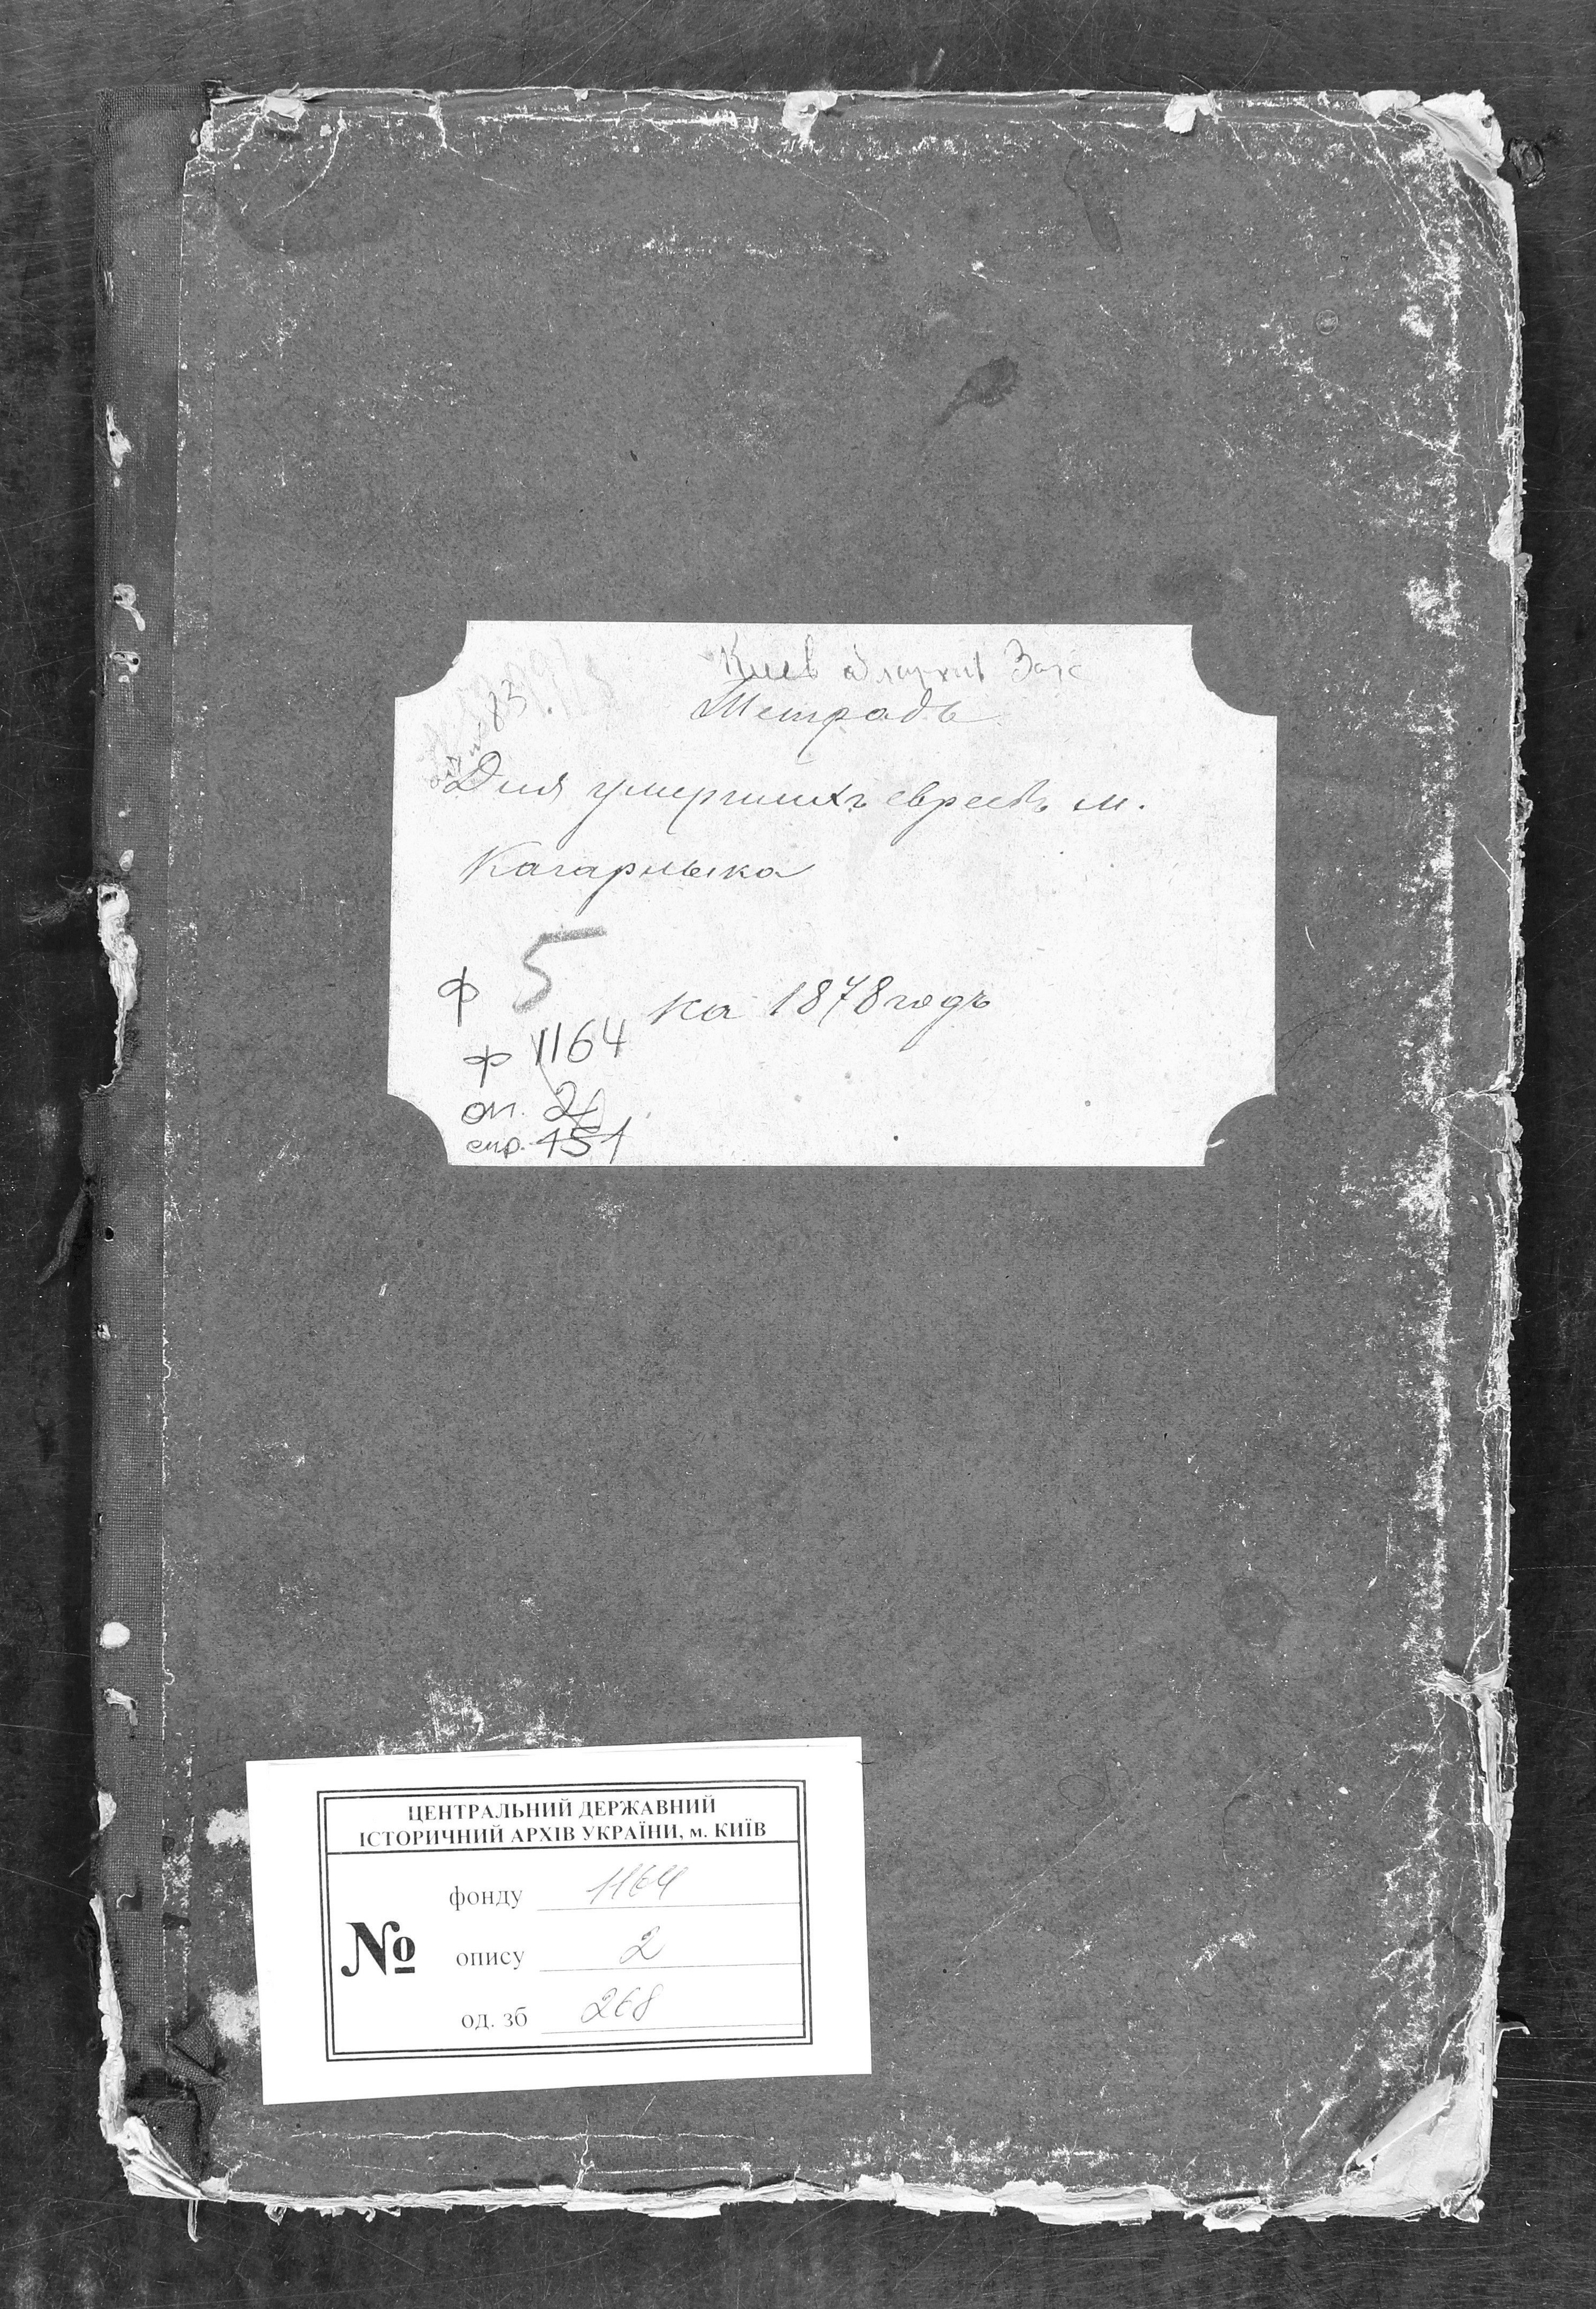 Киев облархив Загс
83
Тетрадь
Для умершихъ евреевъ м.
Кагарлыка
ф 5
на 1878 годъ
ф 1164
оп. 2
спр. 151
ЦЕНТРАЛЬНИЙ ДЕРЖАВНИЙ
ІСТОРИЧНИЙ АРХІВ УКРАЇНИ, м. КИЇВ
№
фонду 1164
опису 2
од. зб 268